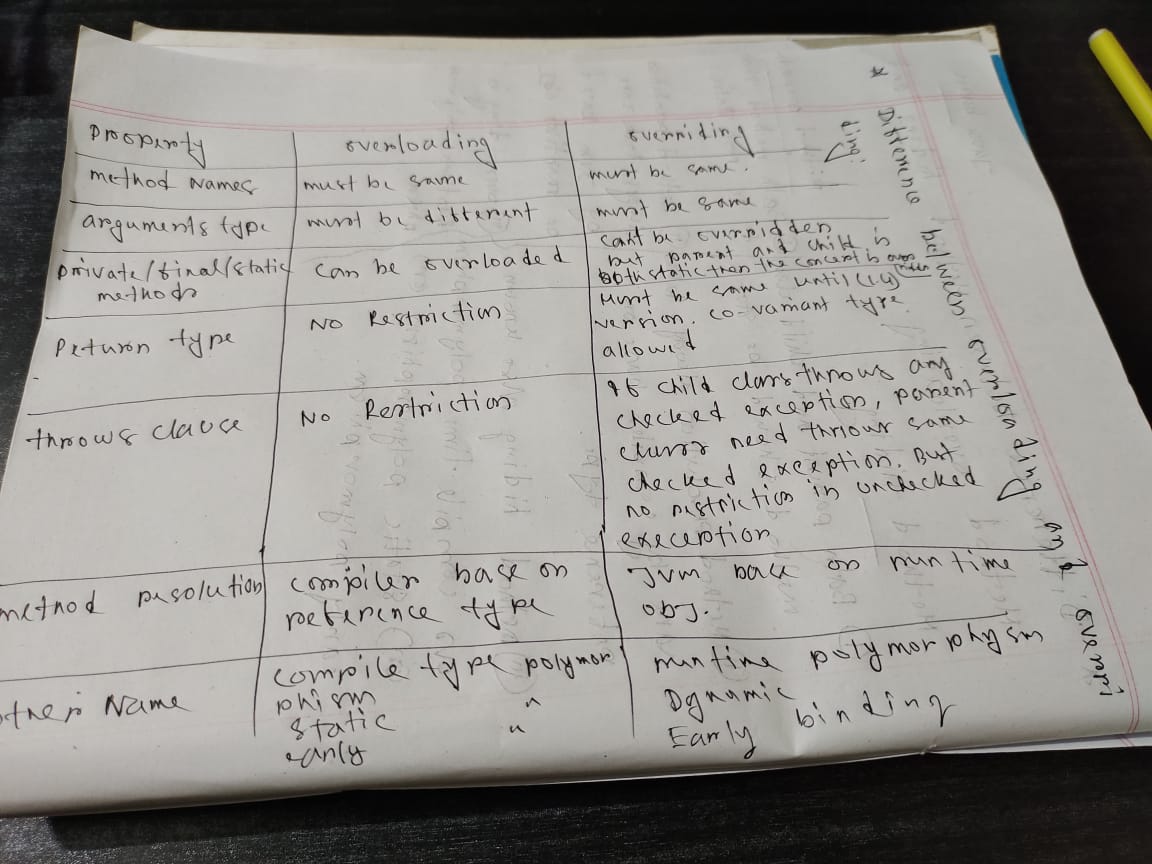 * Difference between overloading and overri
ding:
Property overloading overriding
method Names must be same must be same.
arguments type must be different must be same
private/final/static methods can be overloaded can't be overridden
but parent and child is
both static then the concept is
Return type No Restriction Must be same until (1.4)
version. co-variant type
allowed
throws clause No Restriction If child class throws any
checked exception, parent
need throws same
checked exception. But
no restriction in unchecked
exeception
method resolution compiler base on
reference type
JVM base on runtime
obj.
other Name compile type polymor
phism
static "
early "
runtime polymorphysm
Dynamic
Early binding